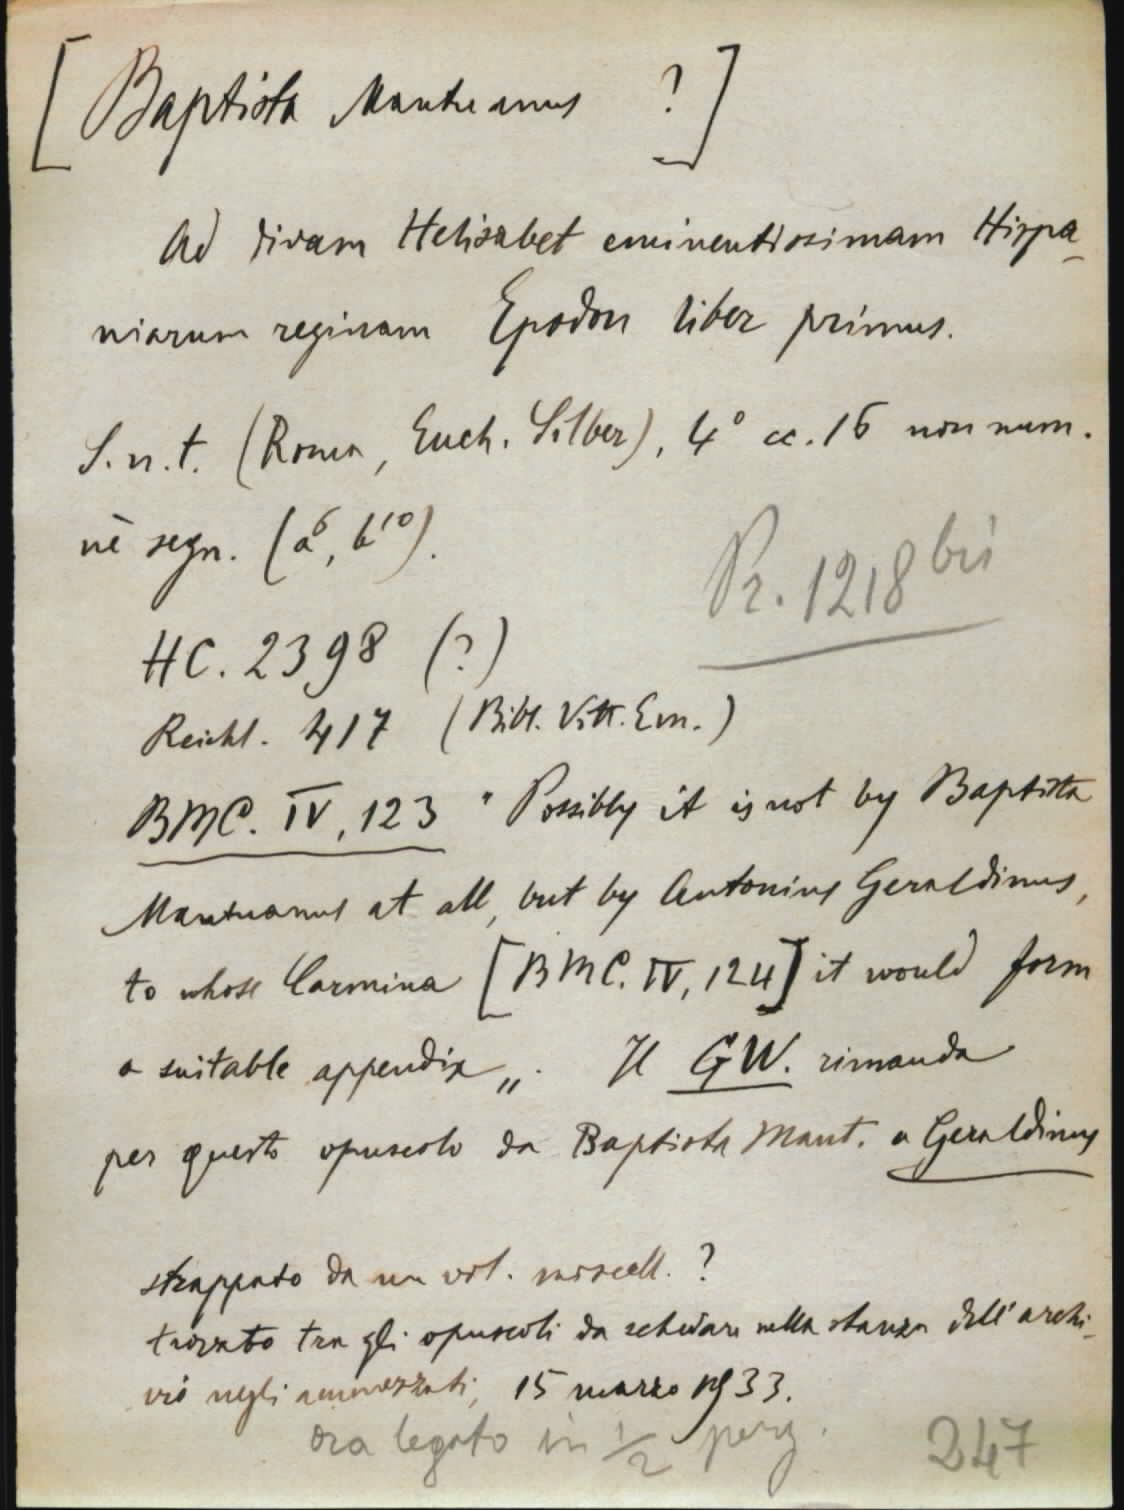 [Baptista Mantuanus ?]
Ad divam Helisabet eminentissimam Hispa-
niarum reginam Epodon liber primus.
S.n.t. (Roma, Euch. Silber), 4° cc. 16 non num.
nè segn. (a⁶, b¹⁰).
Pr. 1218 bis
HC. 2398 (?)
Reichl. 417 (Bibl. Vitt. Em.)
BMC. IV, 123 " Possibly it is not by Baptista
Mantuanus at all, but by Antonius Geraldinus,
to whose Carmina [BMC. IV, 124] it would form
a suitable appendix „. Il GW. rimanda
per questo opuscolo da Baptista Mant. a Geraldinus
strappato da un vol. miscell. ?
trovato tra gli opuscoli da schedare nella stanza dell'archi-
vio negli ammezzati, 15 marzo 1933.
ora legato in 1/2 perg.
247